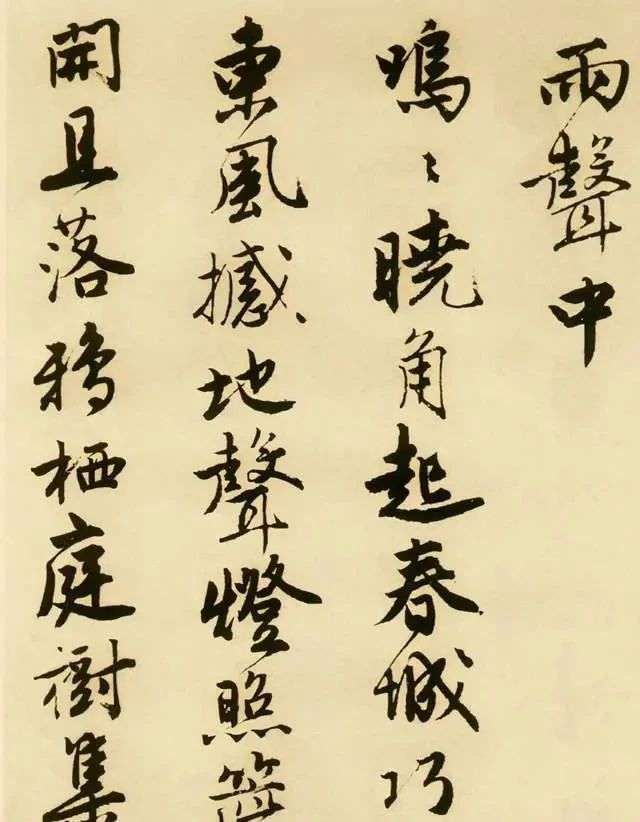 雨聲中
嗚〻曉角起春城巧
東風撼地聲燈照簷
開且落鴉栖庭樹集